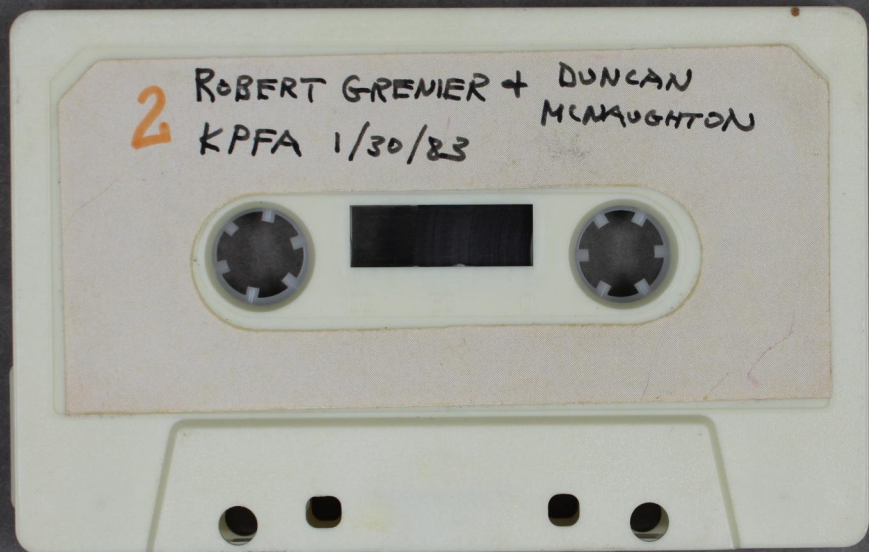 2 ROBERT GRENIER + DUNCAN
MCNAUGHTON
KPFA 1/30/83